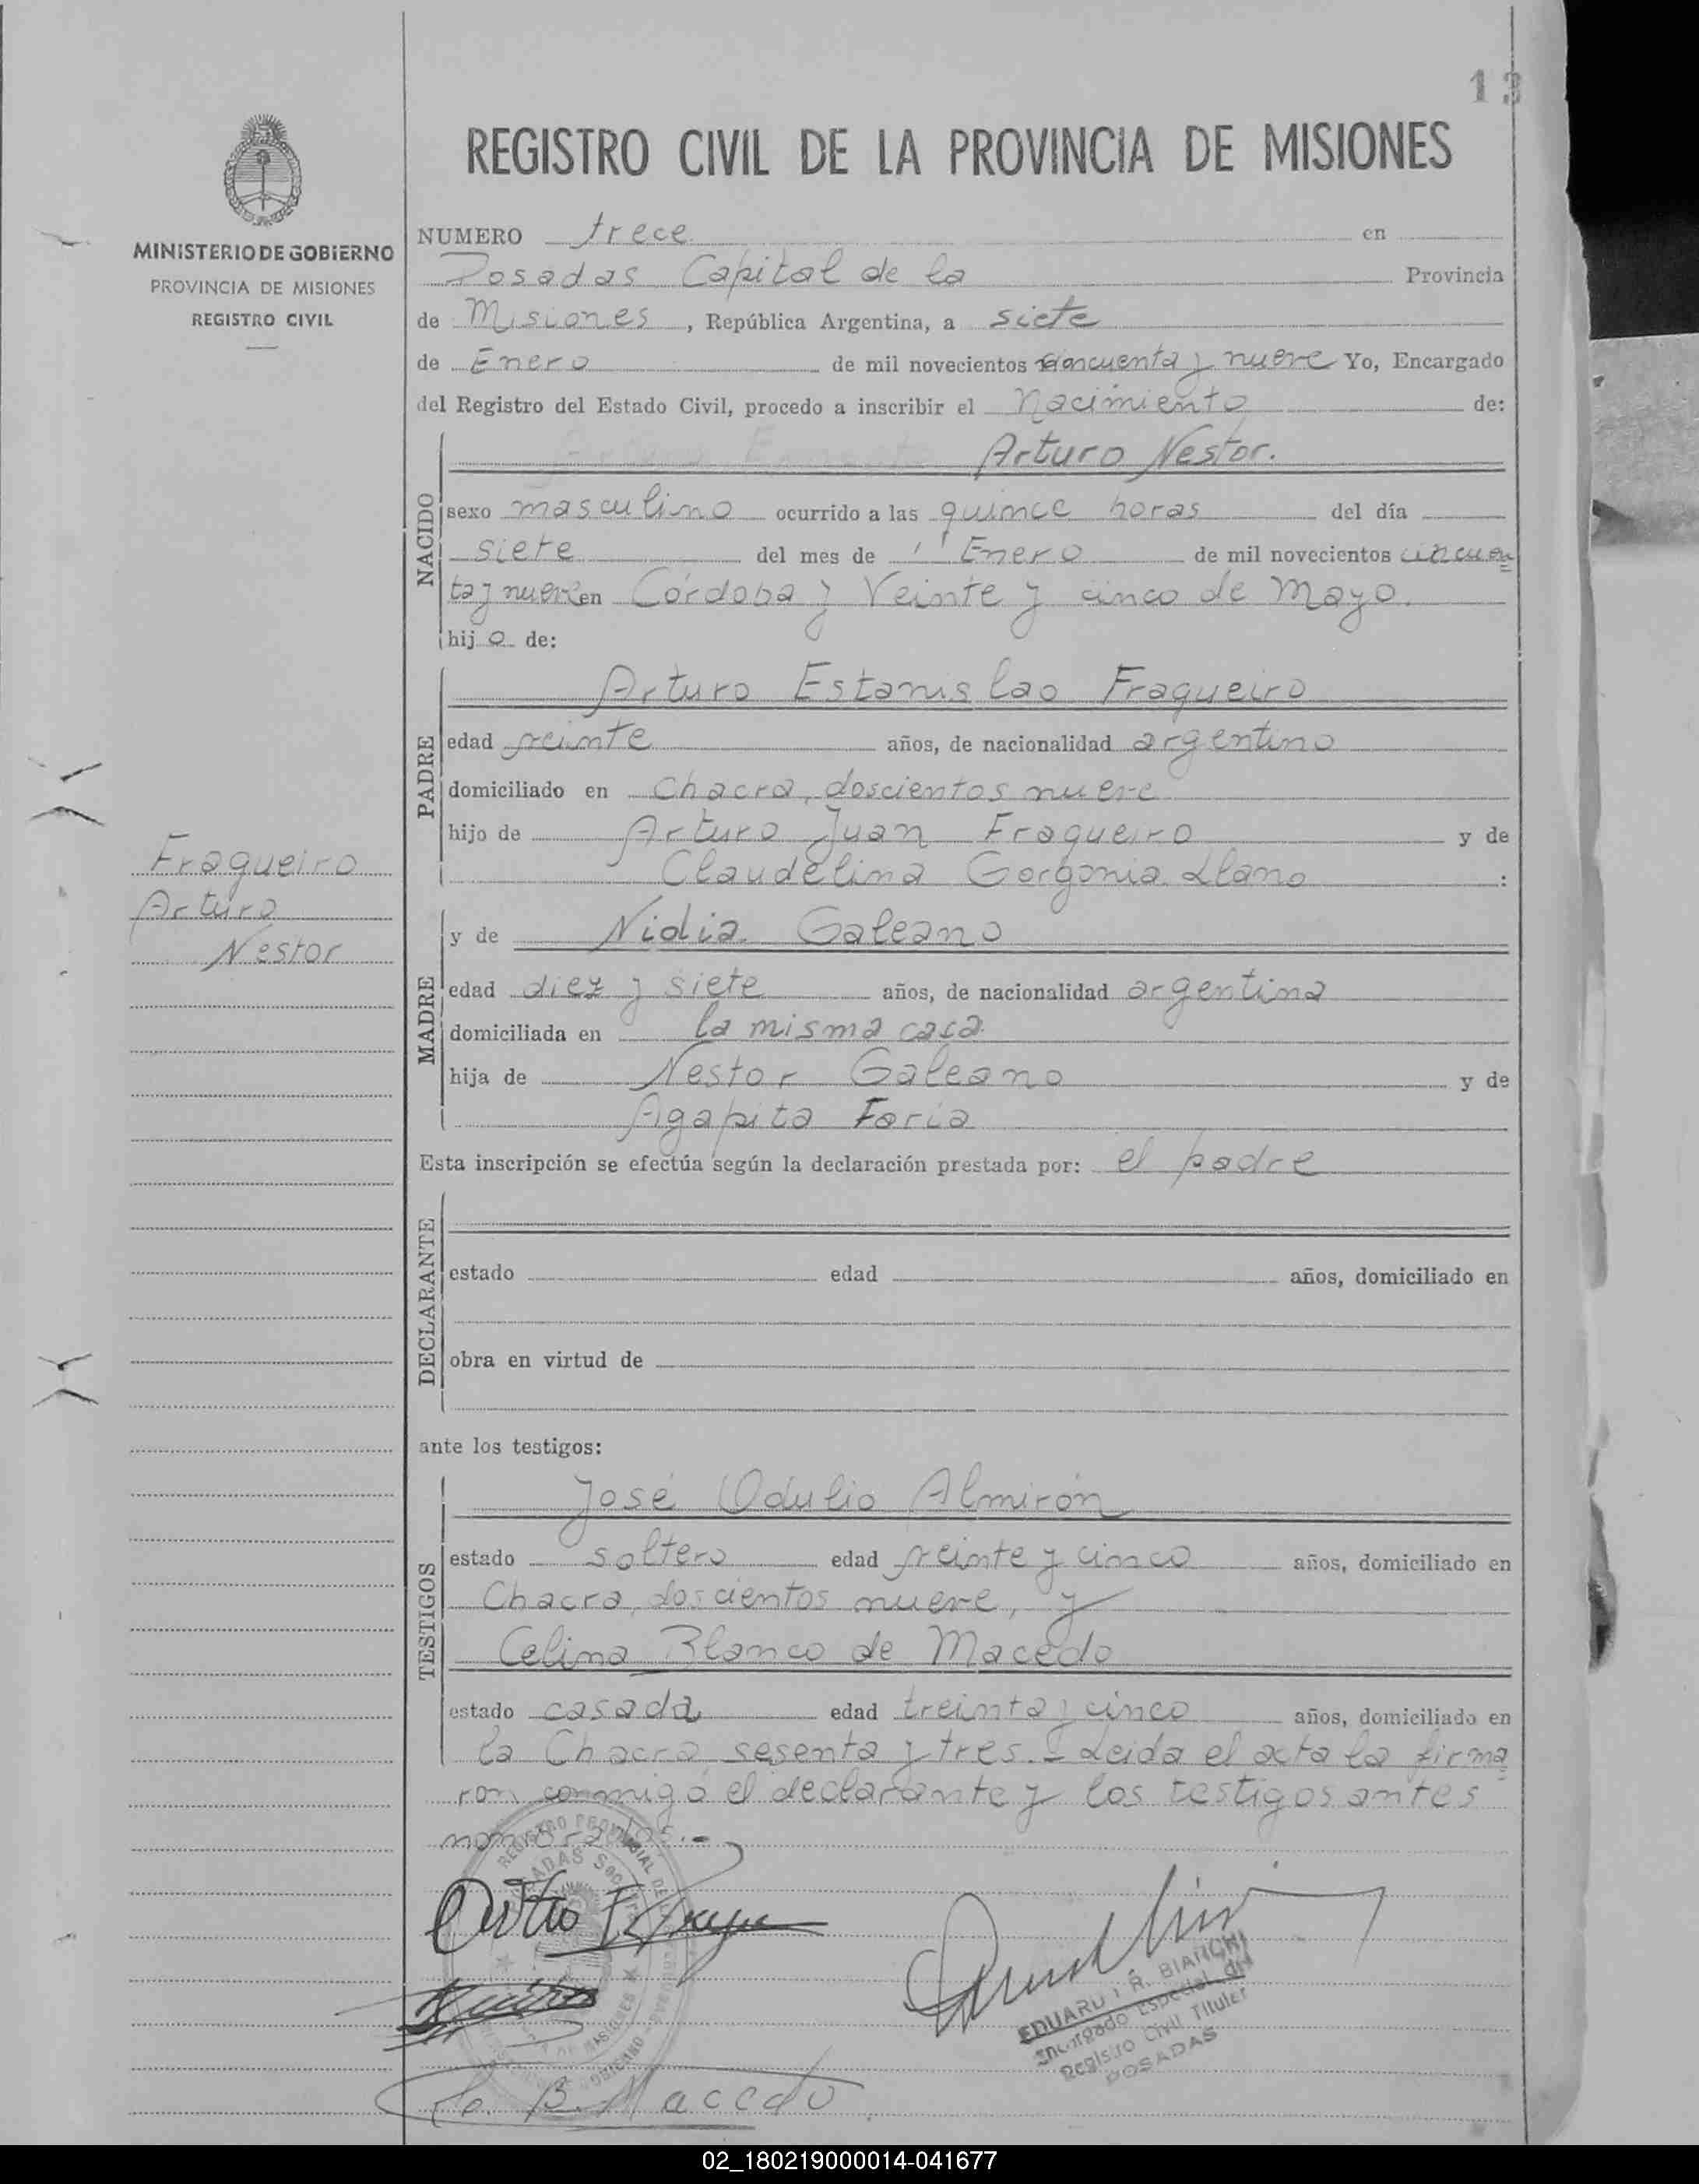 13
REGISTRO CIVIL DE LA PROVINCIA DE MISIONES
MINISTERIO DE GOBIERNO
PROVINCIA DE MISIONES
REGISTRO CIVIL
NUMERO trece en
Posadas Capital de la Provincia
de Misiones, República Argentina, a siete
de Enero de mil novecientos cincuenta y nueve Yo, Encargado
del Registro del Estado Civil, procedo a inscribir el Nacimiento de:
Arturo Nestor.
NACIDO
sexo masculino ocurrido a las quince horas del día
siete del mes de Enero de mil novecientos cincuen
ta y nueve en Córdoba y Veinte y cinco de Mayo.
hijo de:
Arturo Estanislao Fragueiro
PADRE
edad veinte años, de nacionalidad argentino
domiciliado en Chacra, doscientos nueve
hijo de Arturo Juan Fragueiro y de
Claudelina Gorgonia Llano :
Fragueiro
Arturo
Nestor
y de Nidia Galeano
MADRE
edad diez y siete años, de nacionalidad argentina
domiciliada en la misma casa
hija de Nestor Galeano y de
Agapita Faria
Esta inscripción se efectúa según la declaración prestada por: el padre
DECLARANTE
estado edad años, domiciliado en
obra en virtud de
ante los testigos:
José Odulio Almirón
TESTIGOS
estado soltero edad veinte y cinco años, domiciliado en
Chacra, doscientos nueve, y
Celina Blanco de Macedo
estado casada edad treinta y cinco años, domiciliado en
la Chacra sesenta y tres. Leida el acta la firma
ron conmigo el declarante y los testigos antes
nombrados.-
EDUARDO R. BIANCHI
Encargado Especial del
Registro Civil Titular
POSADAS
B. Macedo
02_180219000014-041677